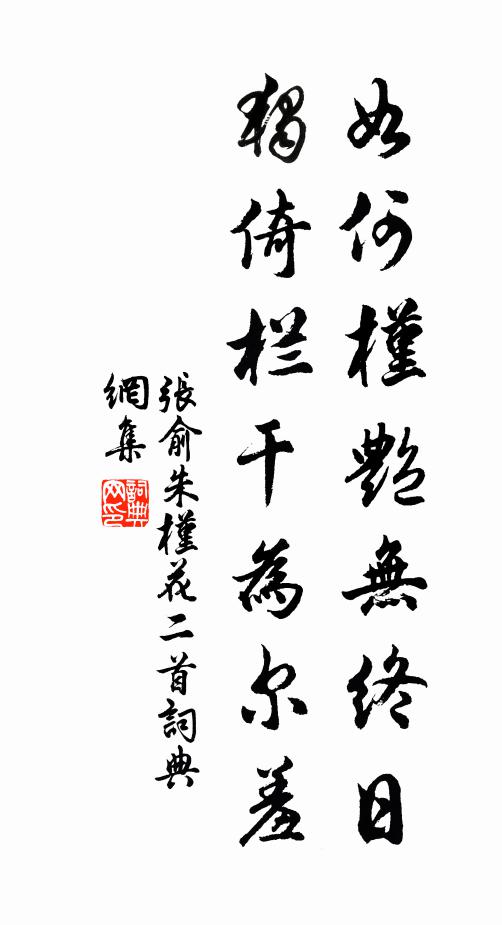 如何槿艷無終日
獨倚栏干為尔羞
張俞朱槿花二首詞典
網集
詞典
网印